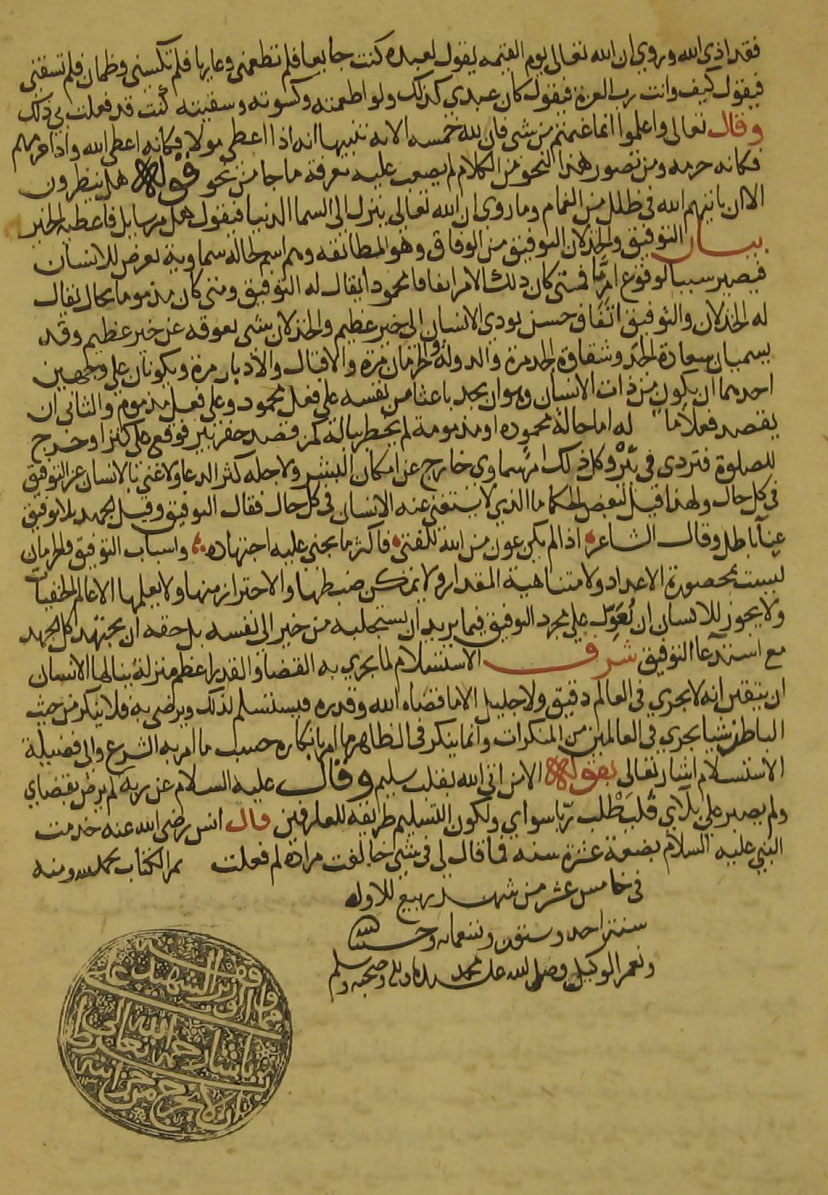 فقد اذى الله وروي ان الله تعالى يوم القيمه يقول لعبده كنت جايعا فلم تطعمني وعاريا فلم تكسيني وظمان فلم تسقني
فيقول كيف وانت رب العزة فيقول كان عبدي كذلك ولو اطعمته وكسوته وسقيته كنت قد فعلت بي ذلك
وقال تعالى واعلموا انما غنمتم من شي فان لله خمسه الاية تنبيها انه اذا اعطى مولا فكانه اعطى الله واذا حرمهم
فكانه حرمه ومن تصور هذا النحو من الكلام لم يصعب عليه معرفة ما جا من نحو قوله هل ينظرون
الا ان ياتيهم الله في ظلل من الغمام وما روى ان الله تعالى ينزل الى السما الدنيا فيقول هل من سايل فاعطيه الخبر
بيان التوفيق والخذلان التوفيق من الوفاق وهو المطابقه وهم اسم لحالة سماوية تعرض للانسان
فيصير سببا لوقوع امر ما فمتى كان ذلك الامر اتفاقا محمودا يقال له التوفيق ومتى كان مذموما بحال يقال
له الخذلان والتوفيق اتفاق حسن يودي الانسان الى خير عظيم والخذلان شي يعوقه عن خير عظيم وقد
يسميان سعادة الجد وشقاوة الجد مرة والدولة والحرمان مرة والاقبال والادبار مرة ويكونان على وجهين
احدهما ان يكون من ذات الانسان وهو ان يجد باعثا من نفسه على فعل محمود وعلى فعل مذموم والثاني ان
يقصد فعلا ما له اما حالة محموده او مذمومة لم يخطر بباله كمن قصد حفر بير فوقع على كنز او خرج
للصلوة فتردى في بئر وكل ذلك امر سماوي خارج عن امكان البشر ولاجله كثر الدعا ولا غنى بالانسان عن التوفيق
في كل حال ولهذا قيل لبعض الحكما ما الذي لا يستغنى عنه الانسان في كل حال فقال التوفيق وقيل الجهد بلا توفيق
عنا باطل وقال الشاعر اذا لم يكن عون من الله للفتى فاكثر ما يجني عليه اجتهاده واسباب التوفيق والحرمان
ليست بمحصورة الاعداد ولا متناهية المقدار ولا يمكن ضبطها والاحتراز منها ولا يعلمها الا عالم الخفيات
ولا يجوز للانسان ان يعول على مجرد التوفيق فيما يريد ان يستجلبه من خير الى نفسه بل حقه ان يجتهد كل الجهد
مع استدعا التوفيق شرف الاستسلام لما يجري به القضا والقدر اعظم منزلة ينالها الانسان
ان يتيقن انه لا يجري في العالم دقيق ولا جليل الا ما قضاه الله وقدره فيستسلم لذلك ويرضى به فلا ينكر من حيث
الباطن شيا يجري في العالمين من المنكرات وانما ينكر في الظاهر ما امر بانكاره حسب ما امر به الشرع والى فضيلة
الاستسلام اشار تعالى بقوله الا من اتى الله بقلب سليم وقال عليه السلام عن ربه لم يرض بقضاي
ولم يصبر على بلاي فليطلب ربا سواي ولكون التسليم طريقه للعارفين قال انس رضي الله عنه خدمت
النبي عليه السلام بضعة عشرة سنه فما قال لي في شي خالفت مراده لم فعلت تم الكتاب بحمد الله ومنه
في خامس عشر من شهر ربيع للاول
سنة احد وستون وتسعمايه وحسبنا الله
ونعم الوكيل وصلى الله على محمد واله وصحبه وسلم